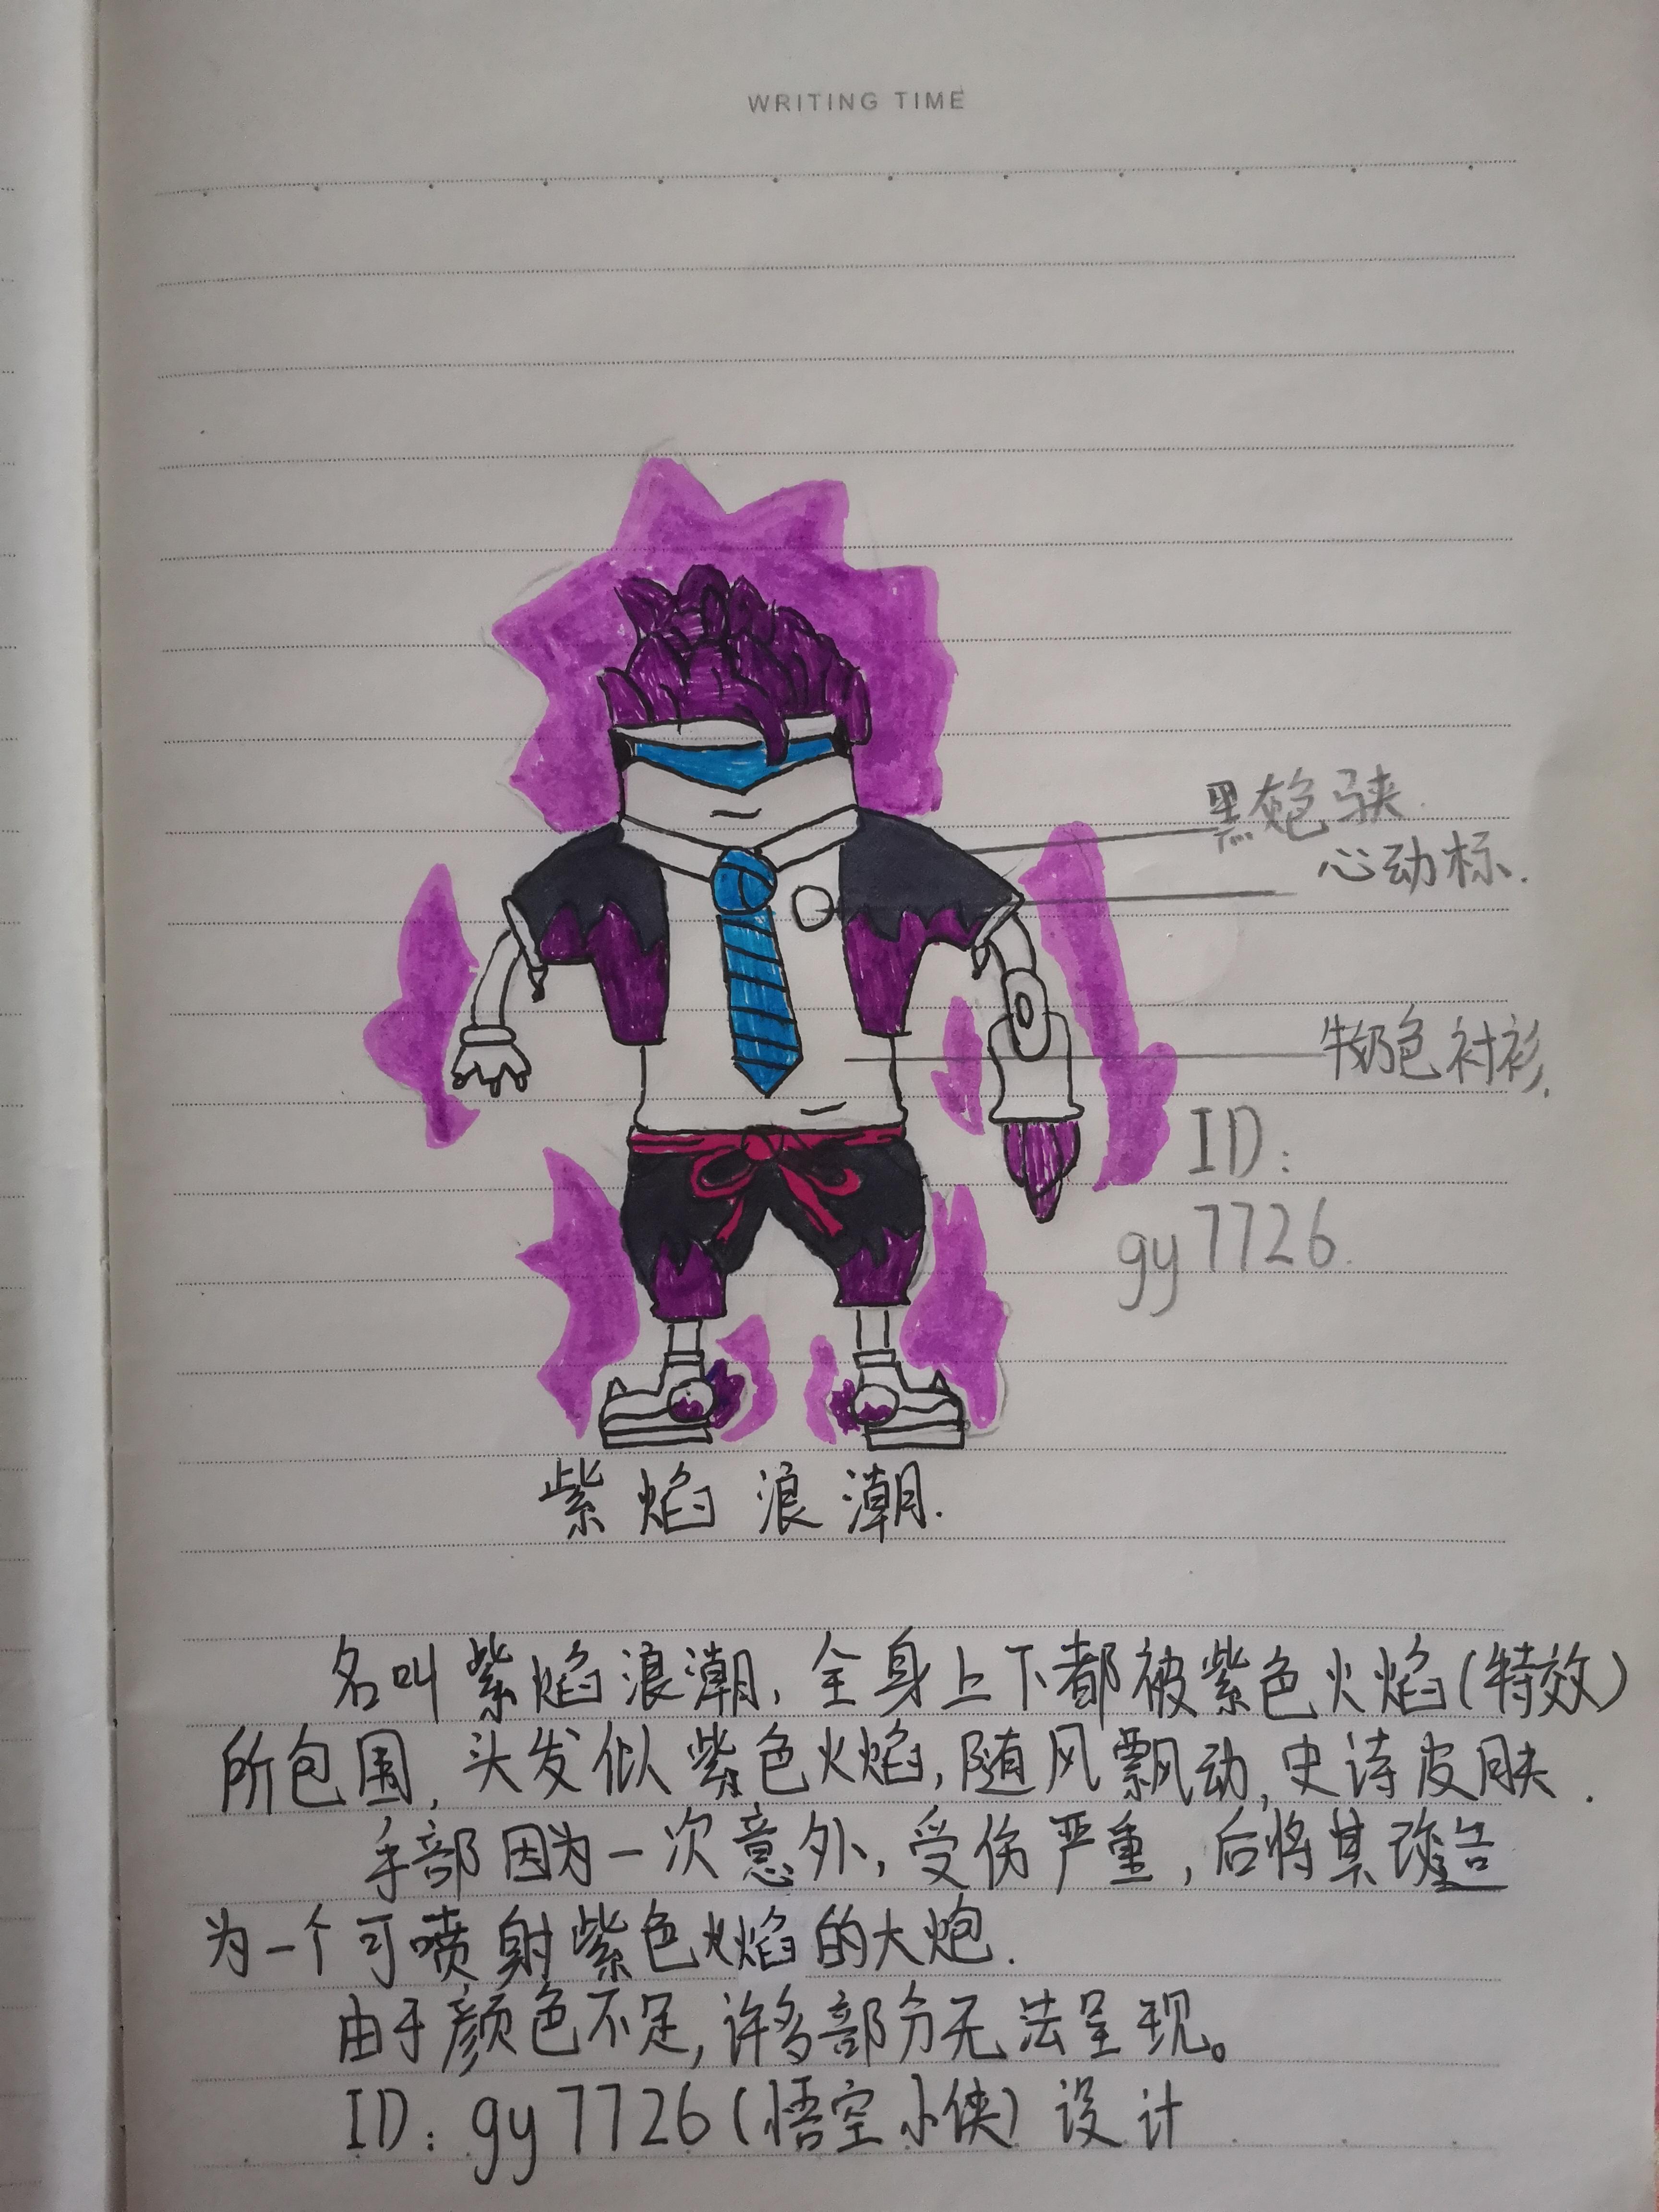 WRITING TIME
黑炮马夹.
心动标.
牛奶色衬衫.
ID:
gy7726.
紫焰浪潮.
名叫紫焰浪潮,全身上下都被紫色火焰(特效)
所包围,头发似紫色火焰,随风飘动,史诗皮肤.
手部因为一次意外,受伤严重,后将其改造
为一个可喷射紫色火焰的大炮.
由于颜色不足,许多部分无法呈现。
ID:gy7726(悟空小侠)设计